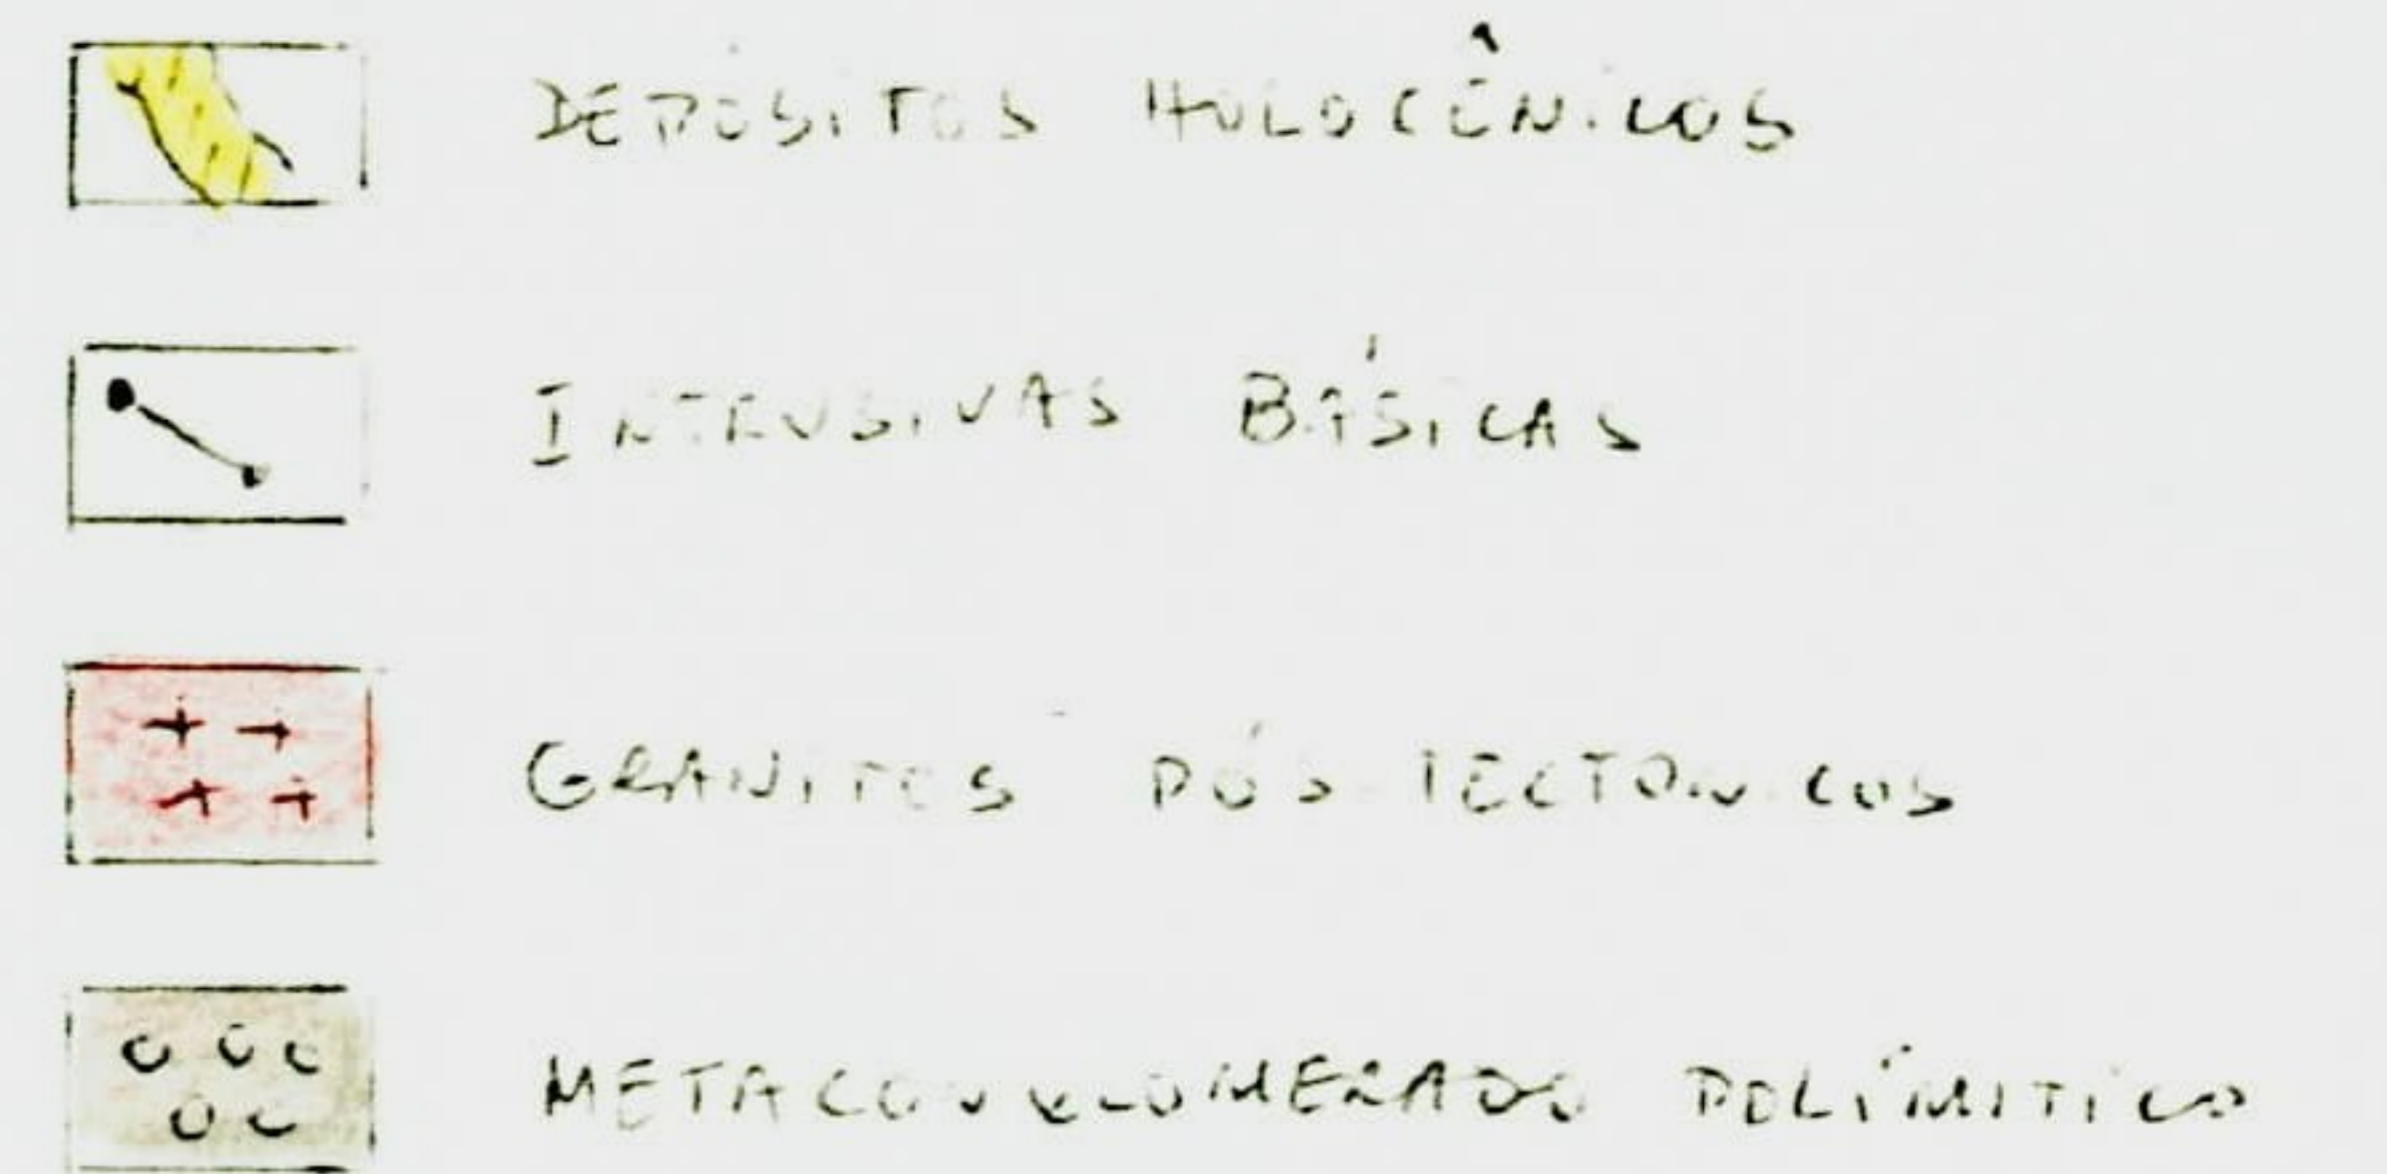 DEPÓSITOS HOLOCÊNICOS
INTRUSIVAS BÁSICAS
GRANITOS PÓS TECTONICOS
METACONGLOMERADO POLÍMITICO